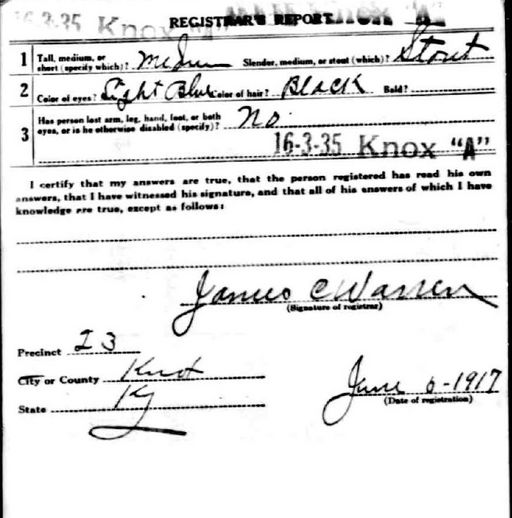 16-3-35 Knox "A"
REGISTRAR'S REPORT
1 Tall, medium, or short (specify which)? Medium Slender, medium, or stout (which)? Stout
2 Color of eyes? Light Blue Color of hair? Black Bald?
3 Has person lost arm, leg, hand, foot, or both eyes, or is he otherwise disabled (specify)? No.
16-3-35 Knox "A"
I certify that my answers are true, that the person registered has read his own
answers, that I have witnessed his signature, and that all of his answers of which I have
knowledge are true, except as follows:
James C Warren
(Signature of registrar)
Precinct 23
City or County Knox
State Ky
June 6-1917
(Date of registration)